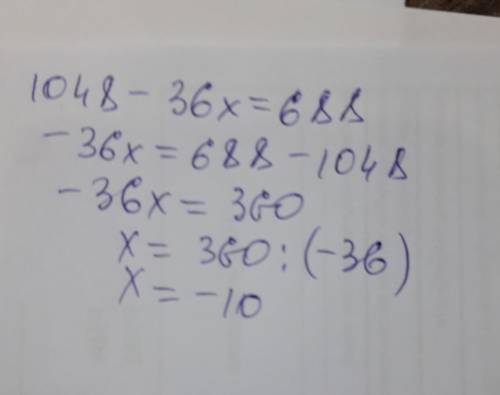 1048 - 36x = 688
-36x = 688 - 1048
-36x = 360
x = 360 : (-36)
x = -10